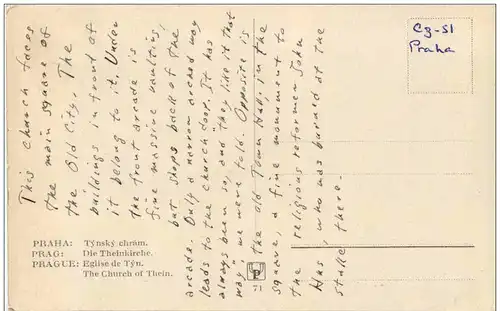 This church faces
the main square of
the Old City. The
buildings in front of
it belong to it. Under
the front arcade is
fine massive vaulting,
but shops back of the
arcade. Only a narrow arched way
leads to the church door. It has
always been so, and "they like it that
way," we were told. Opposite is
the old Town Hall, in the
square, a fine monument to
the religious reformer John
Hus, who was burned at the
stake there.
Cz-51
Praha
PRAHA: Týnský chrám.
PRAG: Die Theinkirche.
PRAGUE: Eglise de Týn.
The Church of Thein.
P
71